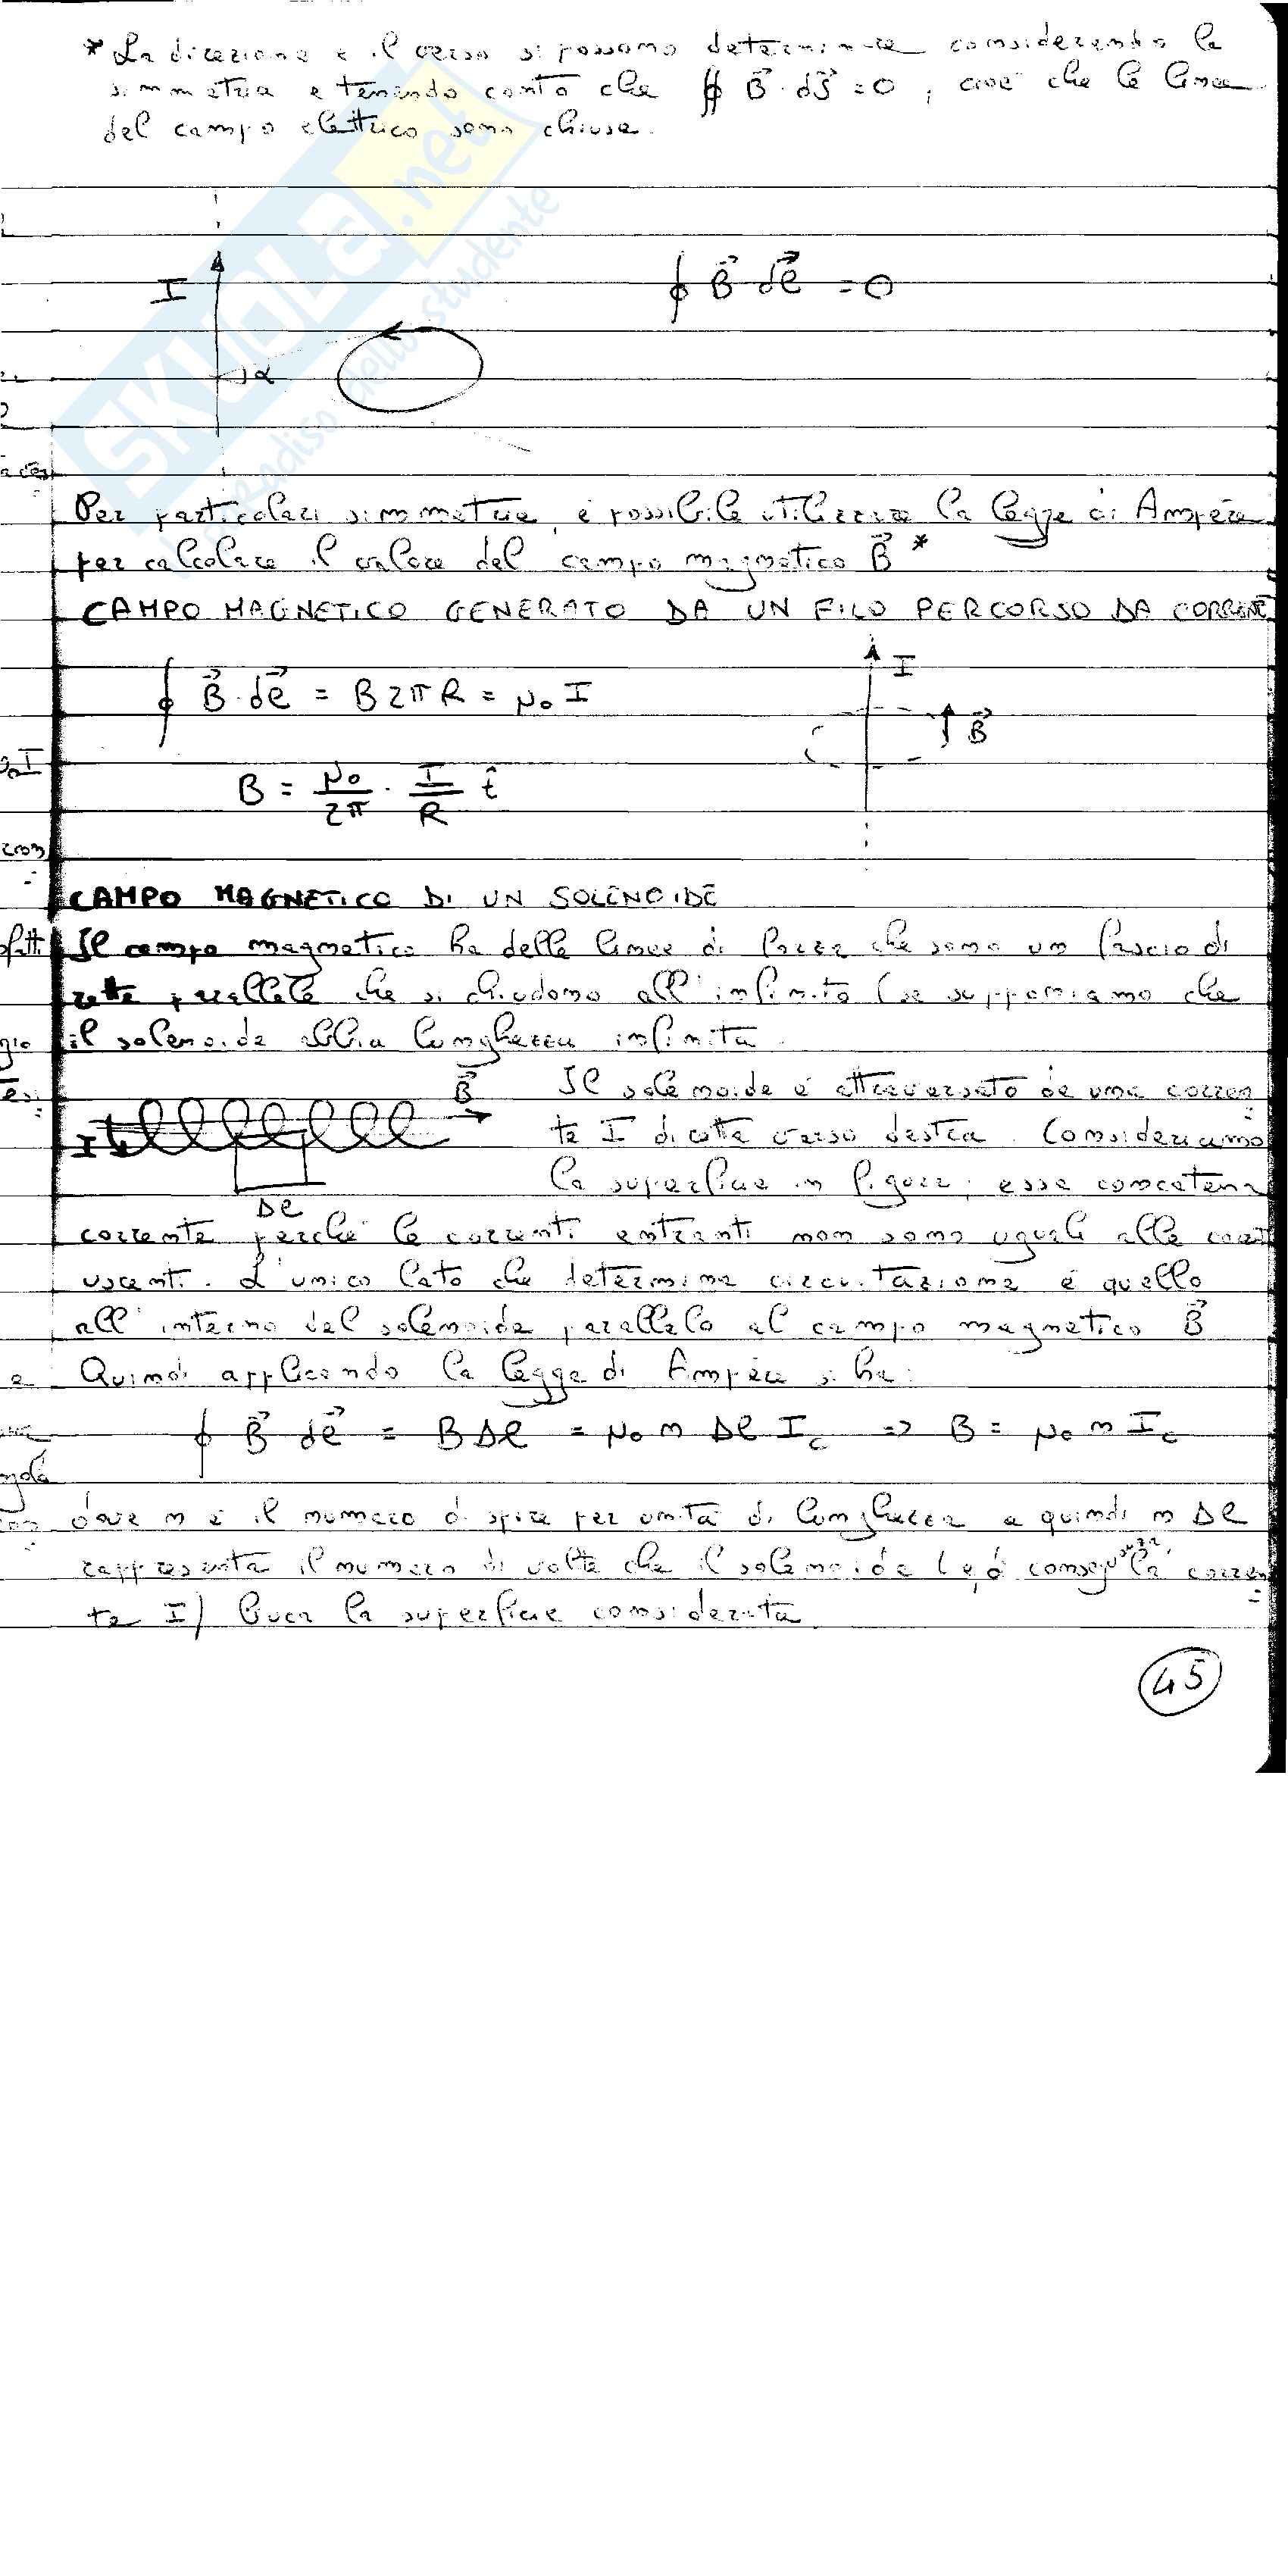 * La direzione e il verso si possono determinare considerando la
simmetria e tenendo conto che ∯ B⃗ · dS⃗ = 0, cioè che le linee
del campo elettrico sono chiuse.
SKUOLA.net
paradiso dello studente
I
∮ B⃗ dl⃗ = 0
α
Per particolari simmetrie, è possibile utilizzare la legge di Ampère
per calcolare il valore del campo magnetico B⃗ *
CAMPO MAGNETICO GENERATO DA UN FILO PERCORSO DA CORRENTE
I
∮ B⃗ · dl⃗ = B 2π R = μ₀ I
B⃗
B = μ₀/2π · I/R t̂
CAMPO MAGNETICO DI UN SOLENOIDE
Il campo magnetico ha delle linee di forza che sono un fascio di
rette parallele che si chiudono all'infinito (se supponiamo che
il solenoide abbia lunghezza infinita.
B⃗
Il solenoide è attraversato da una corren
I
te I diretta verso destra. Consideriamo
la superficie in figura; essa concatena
Δl
corrente perché le correnti entranti non sono uguali alle
uscenti. L'unico lato che determina circuitazione è quello
all'interno del solenoide parallelo al campo magnetico B⃗
Quindi applicando la legge di Ampère si ha:
∮ B⃗ dl⃗ = B Δl = μ₀ n Δl I_c => B = μ₀ n I_c
dove n è il numero di spire per unità di lunghezza e quindi n Δl
rappresenta il numero di volte che il solenoide (e, di conseguenza, la corren
te I) buca la superficie considerata
45